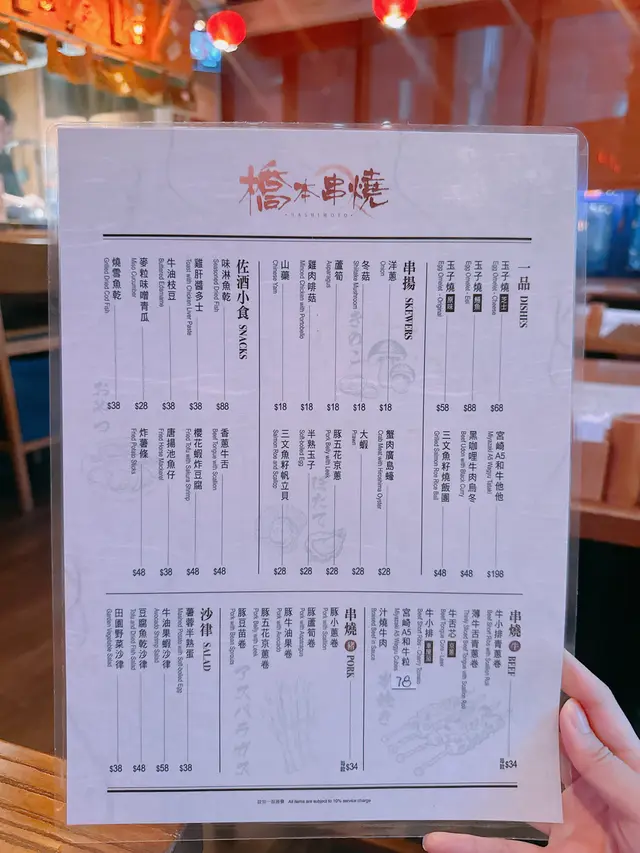 橋本串燒
HASHIMOTO
一品 DISHES
玉子燒 芝士
Egg Omelet - Cheese
$68
玉子燒 鰻魚
Egg Omelet - Eel
$88
玉子燒 原味
Egg Omelet - Original
$58
宮崎A5和牛他他
Miyazaki A5 Wagyu Tataki
$198
黑咖哩牛肉烏冬
Beef Udon with Black Curry
$48
三文魚籽燒飯團
Grilled Salmon Roe Rice Ball
$48
串揚 SKEWERS
洋蔥
Onion
$18
冬菇
Shiitake Mushroom
$18
蘆筍
Asparagus
$18
雞肉啡菇
Minced Chicken with Portobello
$18
山藥
Chinese Yam
$18
蟹肉廣島蠔
Crab Meat with Hiroshima Oyster
$28
大蝦
Prawn
$28
豚五花京蔥
Pork Belly with Leek
$28
半熟玉子
Soft-boiled Egg
$28
三文魚籽帆立貝
Salmon Roe and Scallop
$28
佐酒小食 SNACKS
味淋魚乾
Seasoned Dried Fish
$88
雞肝醬多士
Toast with Chicken Liver Paste
$38
牛油枝豆
Buttered Edamame
$38
麥粒味噌青瓜
Miso Cucumber
$28
燒雪魚乾
Grilled Dried Cod Fish
$38
香蔥牛舌
Beef Tongue with Scallion
$48
櫻花蝦炸豆腐
Fried Tofu with Sakura Shrimp
$48
唐揚池魚仔
Fried Horse Mackerel
$38
炸薯條
Fried Potato Sticks
$48
串燒 牛 BEEF
牛小排青蔥卷
Beef Short Rib with Scallion Roll
薄牛舌青蔥卷
Thinly Sliced Beef Tongue with Scallion Roll
牛舌芯
Beef Tongue Core
牛小排
宮崎A5和牛粒
Miyazaki A5 Wagyu Cubes
78
汁燒牛肉
Braised Beef in Sauce
每串 $34
串燒 豬 PORK
豚小蔥卷
Pork with Scallion
豚蘆筍卷
Pork with Asparagus
豚牛油果卷
Pork with Avocado
豚五花京蔥卷
Pork Belly with Leek
豚豆苗卷
Pork with Bean Sprouts
每串 $34
アスパラガス
沙律 SALAD
薯蓉半熟蛋
Mashed Potato with Soft-boiled Egg
$38
牛油果蝦沙律
Avocado Shrimp Salad
$58
豆腐魚乾沙律
Tofu and Dried Fish Salad
$48
田園野菜沙律
Garden Vegetable Salad
$38
設加一服務費 All items are subject to 10% service charge